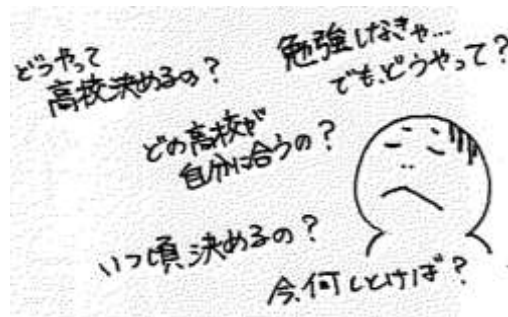 どうやって
高校決めるの？
勉強しなきゃ…
でも、どうやって？
どの高校が
自分に合うの？
いつ頃決めるの？
今、何しとけば？